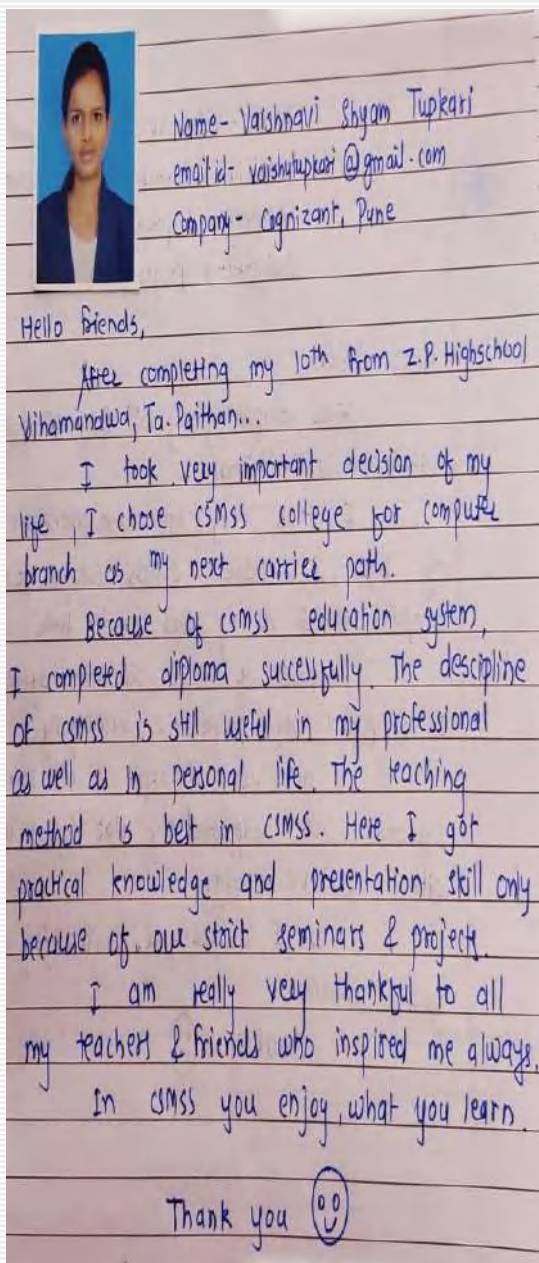 Name- Vaishnavi Shyam Tupkari
email id- vaishutupkari@gmail.com
Company- Cognizant, Pune
Hello friends,
After completing my 10th from Z.P. Highschool
Vihamandwa, Ta. Paithan...
I took very important decision of my
life, I chose CSMSS college for computer
branch as my next carrier path.
Because of CSMSS education system,
I completed diploma successfully. The descipline
of CSMSS is still useful in my professional
as well as in personal life. The teaching
method is best in CSMSS. Here I got
practical knowledge and presentation skill only
because of our strict seminars & projects.
I am really very thankful to all
my teachers & friends who inspired me always.
In CSMSS you enjoy, what you learn.
Thank you